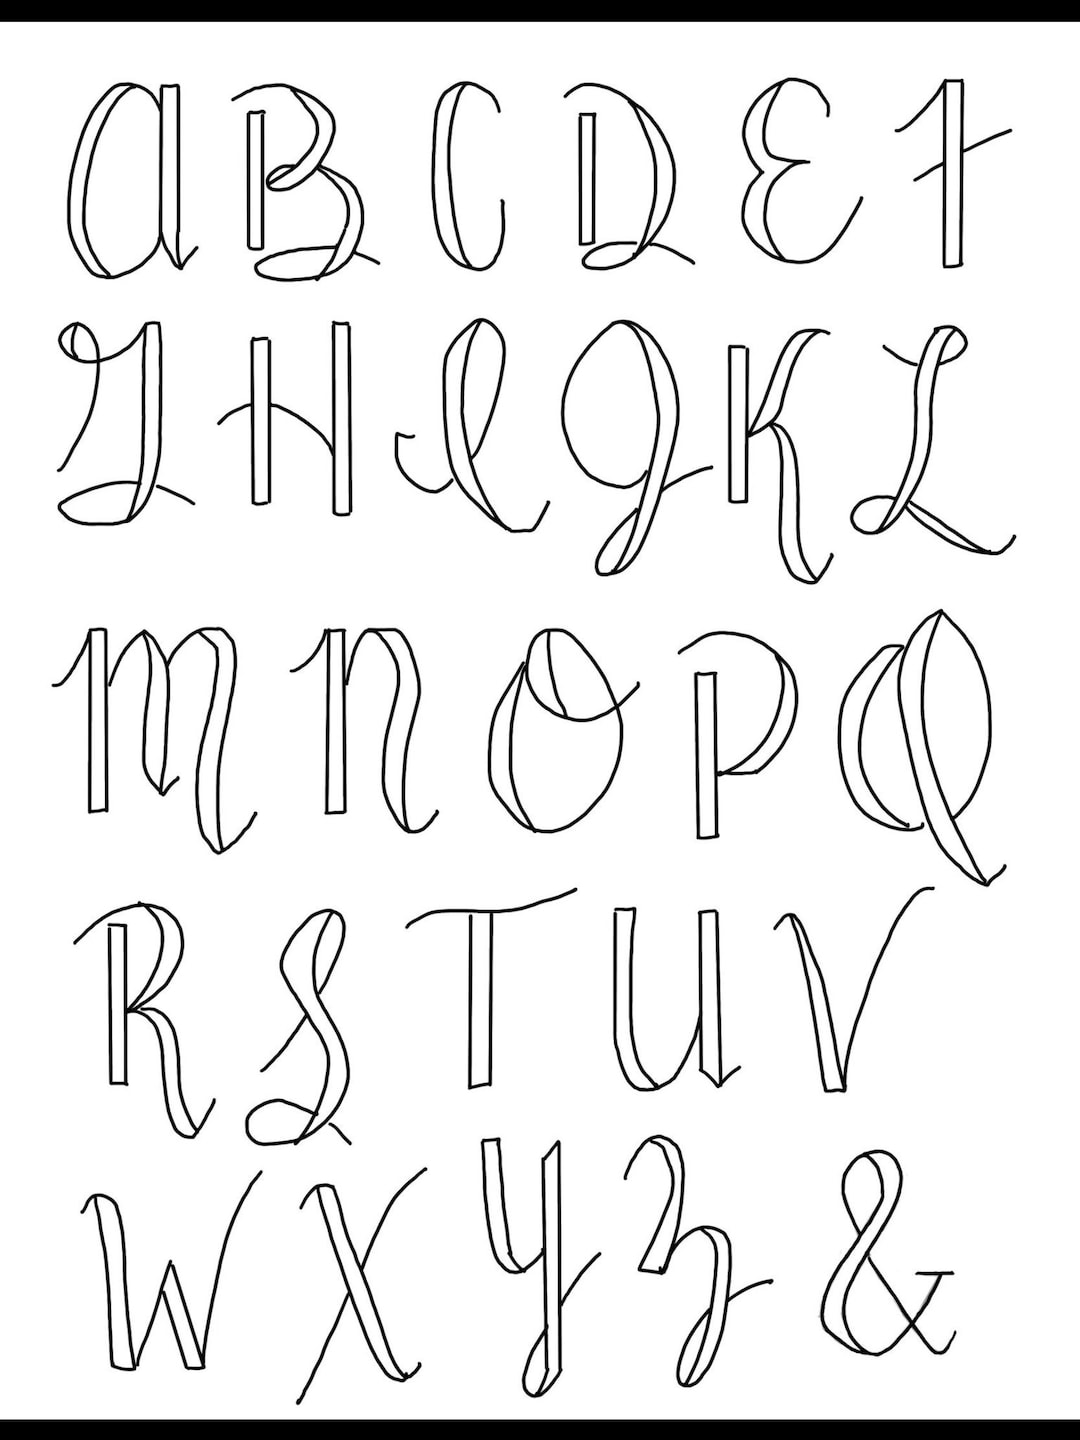 a B C D E F
G H I J K L
M N O P Q
R S T U V
W X Y Z &